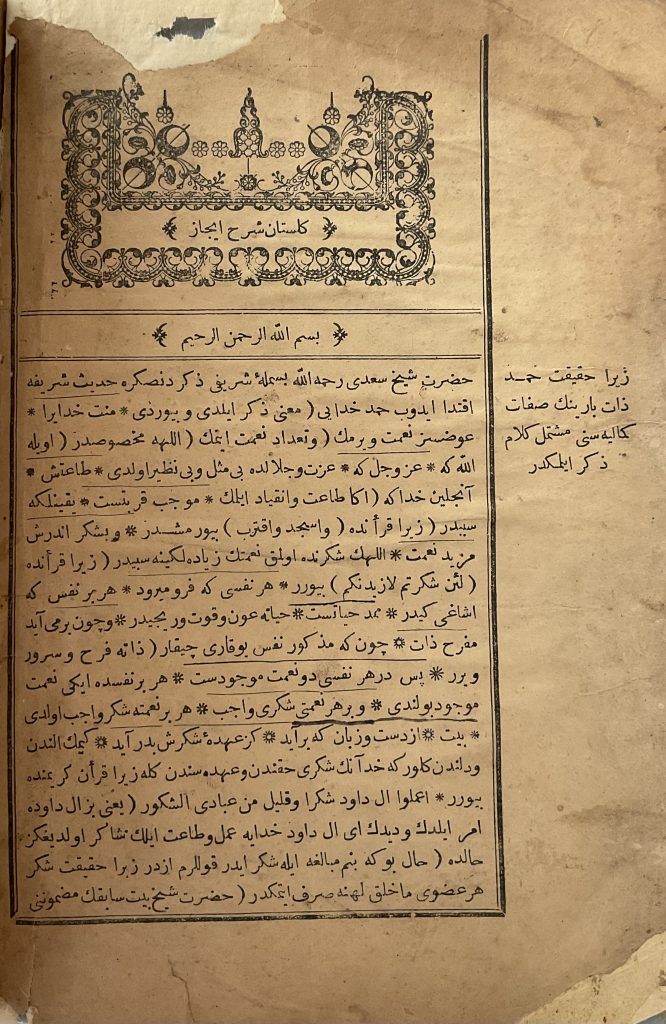 كلستان شرح ايجاز
بسم الله الرحمن الرحيم
حضرت شيخ سعدى رحمه الله بسملهٔ شريفى ذكر دنصكره حديث شريفه
اقتدا ايدوب حمد خدايى ( معنى ذكر ايلدى و بيوردى * منت خدايرا *
عوضسز نعمت ويرمك ( وتعداد نعمت ايتمك ( اللهه مخصوصدر ( اويله
الله كه * عز وجل كه * عزت وجلالده بى مثل وبى نظير اولدى * طاعتش *
آنجلين خدا كه ( اكا طاعت وانقياد ايلمك * موجب قربتست * يقينلكه
سبيدر ( زيرا قرأنده ( واسجد واقترب ) بيورمشدر * و بشكر اندرش
مزيد نعمت * اللهك شكرنده اولمق نعمتك زياده لكينه سبيدر ( زيرا قرأنده
( لئن شكرتم لازيدنكم ) بيورر * هر نفسى كه فرو ميرود * هر بر نفس كه
اشاغى كيدر * ممد حياتست * حياته عون وقوت ويريجيدر * وچون برمى آيد
مفرح ذات * چون كه مذكور نفس يوقارى چيقار ( ذاته فرح و سرور
ويرر * پس در هر نفسى دو نعمت موجودست * هر بر نفسده ايكى نعمت
موجود بولندى * و بر هر نعمتى شكرى واجب * هر بر نعمته شكر واجب اولدى
* بيت * از دست وزبان كه برآيد * كز عهدهٔ شكرش بدر آيد * كيمك الندن
ودلندن كلور كه خدآنك شكرى حقندن وعهده سندن كله زيرا قرأن كريمنده
بيورر * اعملوا ال داود شكرا وقليل من عبادى الشكور ( يعنى بز ال داوده
امر ايلدك وديدك اى ال داود خدايه عمل وطاعت ايلك تشاكر اولديغكز
حالده ( حال بو كه بنم مبالغه ايله شكر ايدر قوللرم ازدر زيرا حقيقت شكر
هر عضوى ما خلق لهنه صرف ايتمكدر ( حضرت شيخ بيت سابقك مضموننى
زيرا حقيقت حمد
ذات بارينك صفات
كماليه سنى مشتمل كلام
ذكر ايلمكدر